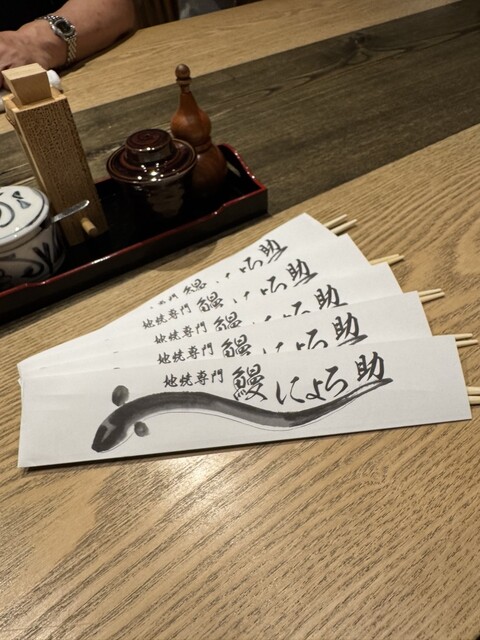 鰻 によろ助
地焼専門 鰻 によろ助
地焼専門 鰻 によろ助
地焼専門 鰻 によろ助
地焼専門 鰻 によろ助